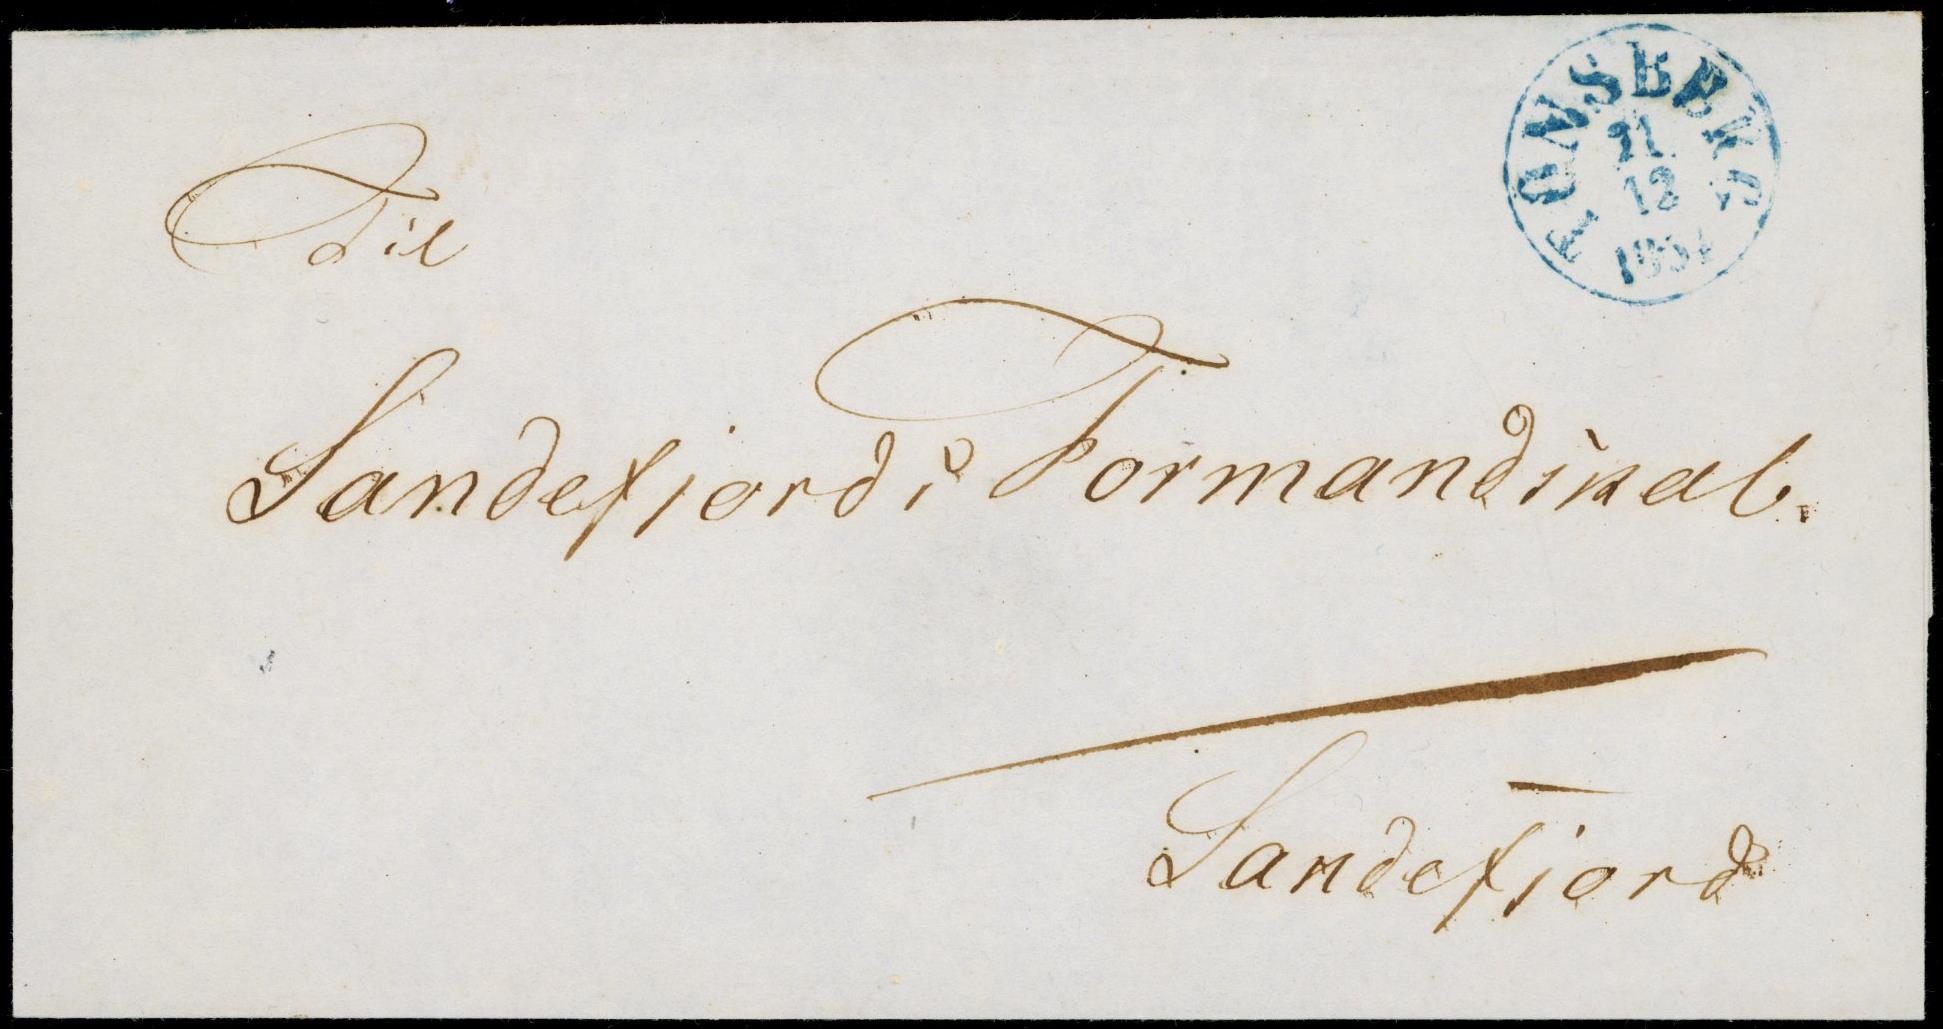 TØNSBERG
21
12
185
Til
Sandefjords Formandskab.
Sandefjord